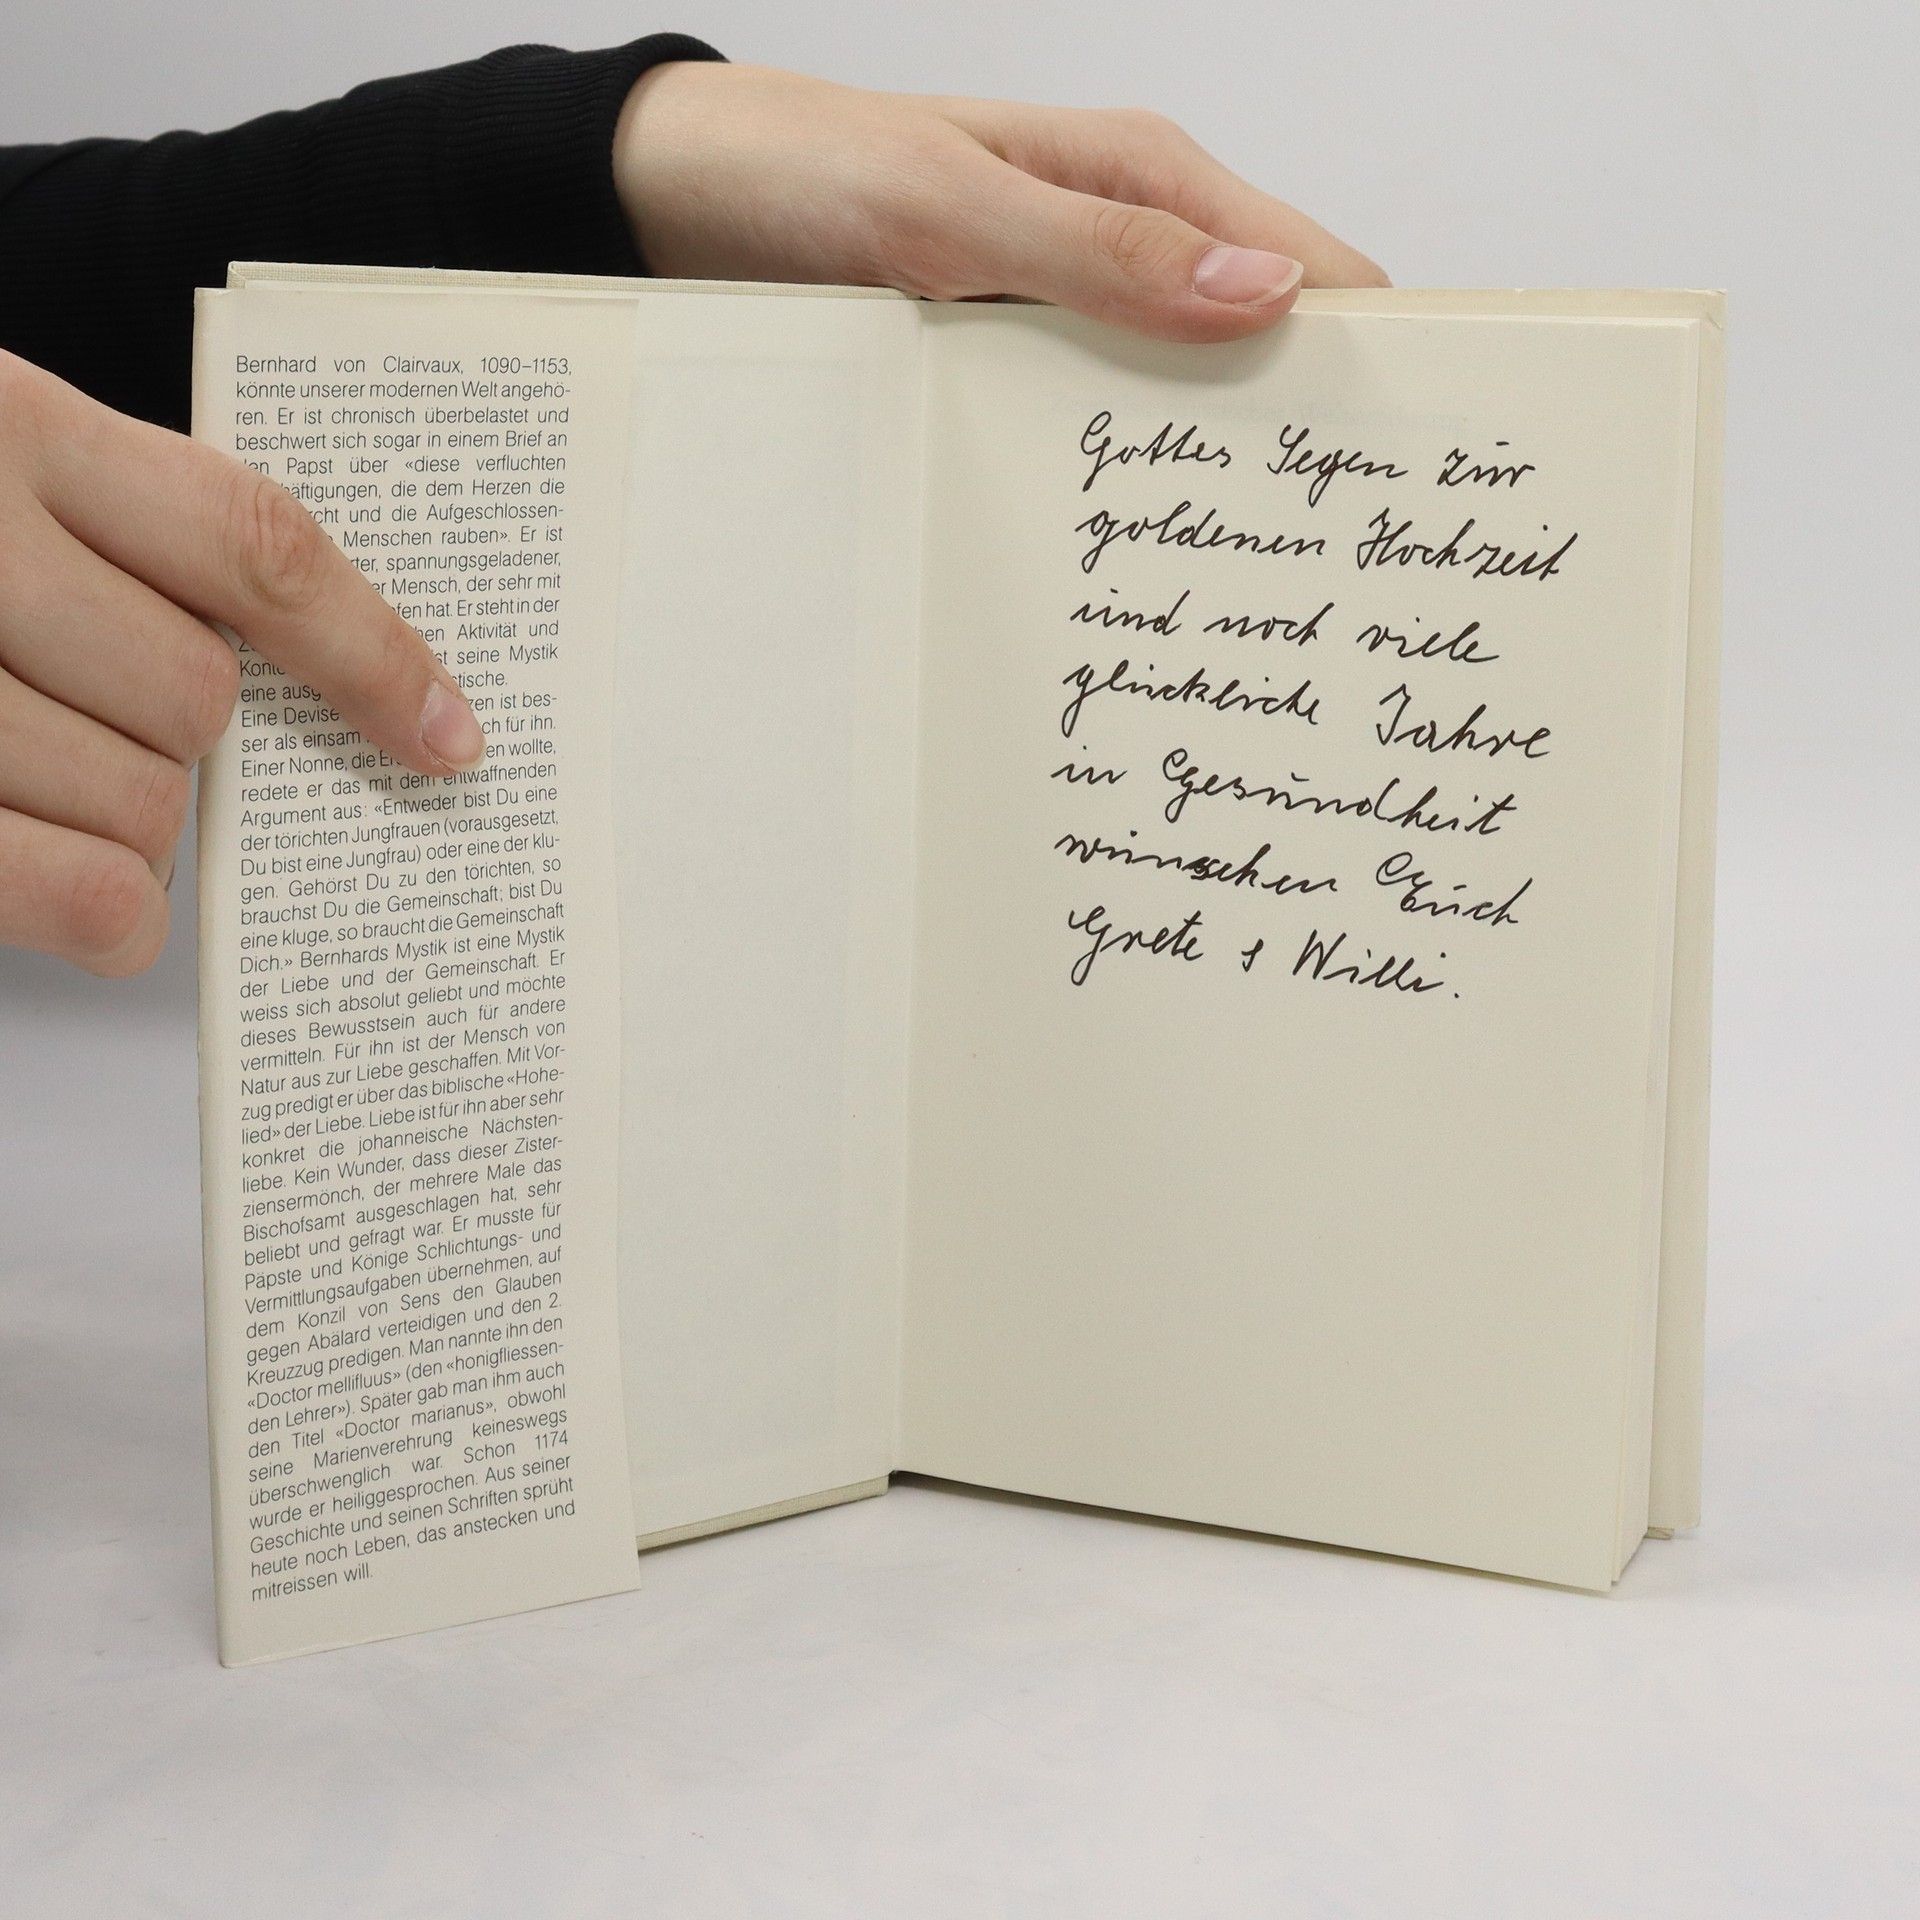 Bernhard von Clairvaux, 1090–1153,
könnte unserer modernen Welt angehö-
ren. Er ist chronisch überbelastet und
beschwert sich sogar in einem Brief an
Papst über «diese verfluchten
häftigungen, die dem Herzen die
rcht und die Aufgeschlossen-
Menschen rauben». Er ist
rter, spannungsgeladener,
er Mensch, der sehr mit
fen hat. Er steht in der
hen Aktivität und
Konte st seine Mystik
eine ausg tische.
Eine Devise zen ist bes-
ser als einsam ch für ihn.
Einer Nonne, die Er en wollte,
redete er das mit dem entwaffnenden
Argument aus: «Entweder bist Du eine
der törichten Jungfrauen (vorausgesetzt,
Du bist eine Jungfrau) oder eine der klu-
gen. Gehörst Du zu den törichten, so
brauchst Du die Gemeinschaft; bist Du
eine kluge, so braucht die Gemeinschaft
Dich.» Bernhards Mystik ist eine Mystik
der Liebe und der Gemeinschaft. Er
weiss sich absolut geliebt und möchte
dieses Bewusstsein auch für andere
vermitteln. Für ihn ist der Mensch von
Natur aus zur Liebe geschaffen. Mit Vor-
zug predigt er über das biblische «Hohe-
lied» der Liebe. Liebe ist für ihn aber sehr
konkret die johanneische Nächsten-
liebe. Kein Wunder, dass dieser Zister-
ziensermönch, der mehrere Male das
Bischofsamt ausgeschlagen hat, sehr
beliebt und gefragt war. Er musste für
Päpste und Könige Schlichtungs- und
Vermittlungsaufgaben übernehmen, auf
dem Konzil von Sens den Glauben
gegen Abälard verteidigen und den 2.
Kreuzzug predigen. Man nannte ihn den
«Doctor mellifluus» (den «honigfliessen-
den Lehrer»). Später gab man ihm auch
den Titel «Doctor marianus», obwohl
seine Marienverehrung keineswegs
überschwenglich war. Schon 1174
wurde er heiliggesprochen. Aus seiner
Geschichte und seinen Schriften sprüht
heute noch Leben, das anstecken und
mitreissen will.
Gottes Segen zur
goldenen Hochzeit
und noch viele
glückliche Jahre
in Gesundheit
wünschen Euch
Grete & Willi.